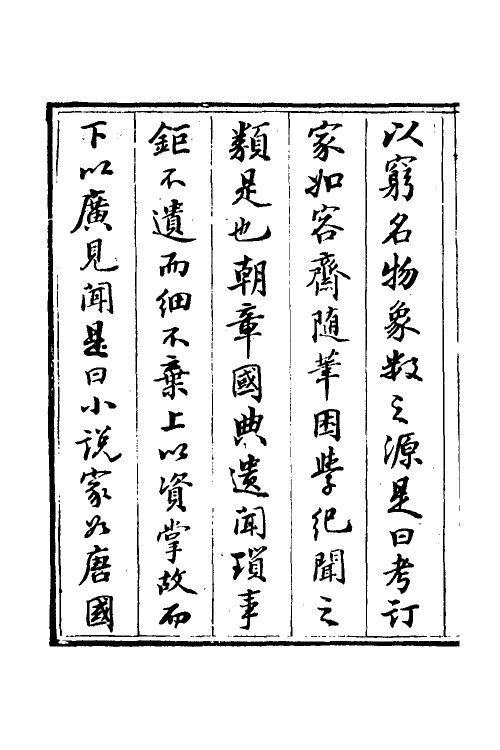 以窮名物象數之源是曰考訂
家如容齋随筆困學紀聞之
類是也朝章國典遺聞瑣事
鉅不遺而細不棄上以資掌故而
下以廣見聞是曰小說家如唐國